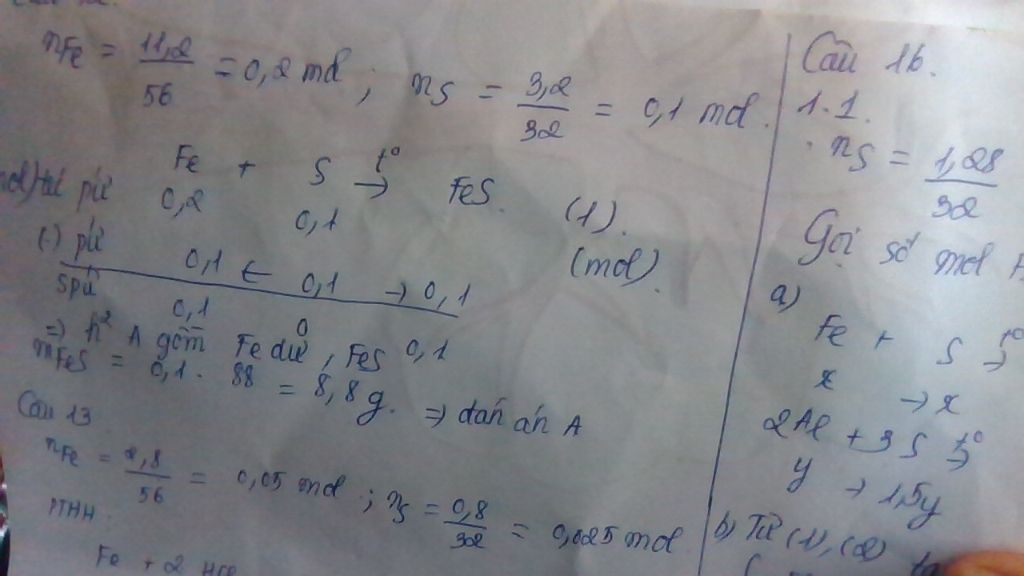 nFe = 11,2/56 = 0,2 mol ; nS = 3,2/32 = 0,1 mol.
Fe + S t°→ FeS. (1).
pứ 0,2 0,1 (mol).
(-) pứ 0,1 ← 0,1 → 0,1
spứ 0,1 0 0,1
=> h² A gồm Fe dư, FeS
mFeS = 0,1 . 88 = 8,8g. => đán án A
Câu 13
nFe = 2,8/56 = 0,05 mol ; nS = 0,8/32 = 0,025 mol
PTHH:
Fe + 2 HCl
Câu 16.
1.1.
nS = 1,28/32
Gọi số mol
a)
Fe + S t°→
x → x
2Al + 3S t°→
y → 1,5y
b) Từ (1), (2) ta